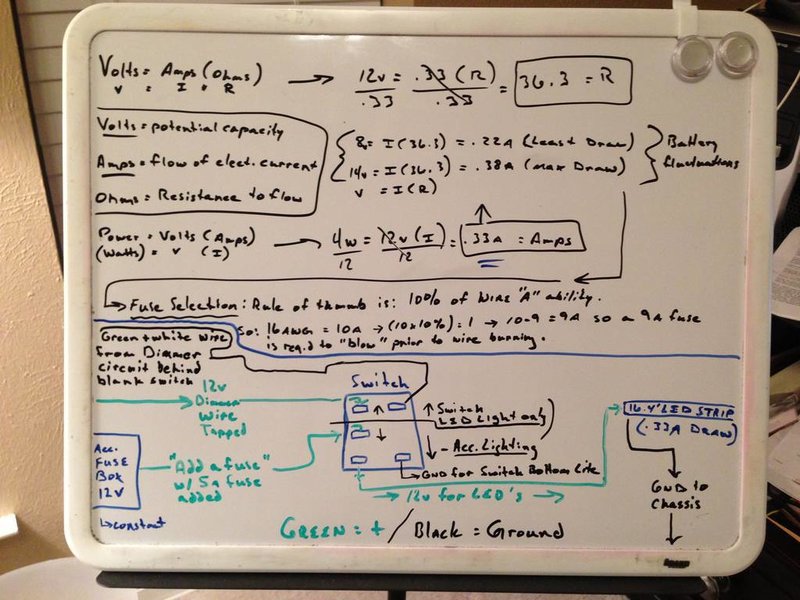 Volts = Amps (Ohms) → 12v = .33 (R) = 36.3 = R
V = I * R .33 .33
Volts = potential capacity
Amps = flow of elect. current
Ohms = Resistance to flow
8v = I(36.3) = .22A (Least Draw)
14v = I(36.3) = .38A (Max Draw)
V = I(R)
Battery
fluctuations
Power = Volts (Amps) → 4w = 12v (I) = .33A = Amps
(Watts) = V (I) 12 12
→ Fuse Selection: Rule of thumb is: 100% of wire "A" ability.
So: 16AWG = 10A → (10x10%) = 1 → 10-9 = 9A so a 9A fuse
is req'd to "blow" prior to wire burning.
Green + white wire
from Dimmer
circuit behind
blank switch
12v
Dimmer
Wire
Tapped
Switch
↑ Switch
LED Light only
↓ - Acc. Lighting
GND for Switch Bottom Lite
Acc.
Fuse
Box
12V
↳ constant
"Add a fuse"
w/ 5A fuse
added
→ 12v for LED's →
16.4' LED STRIP
(.33A DRAW)
GND to
Chassis
GREEN = + / Black = Ground